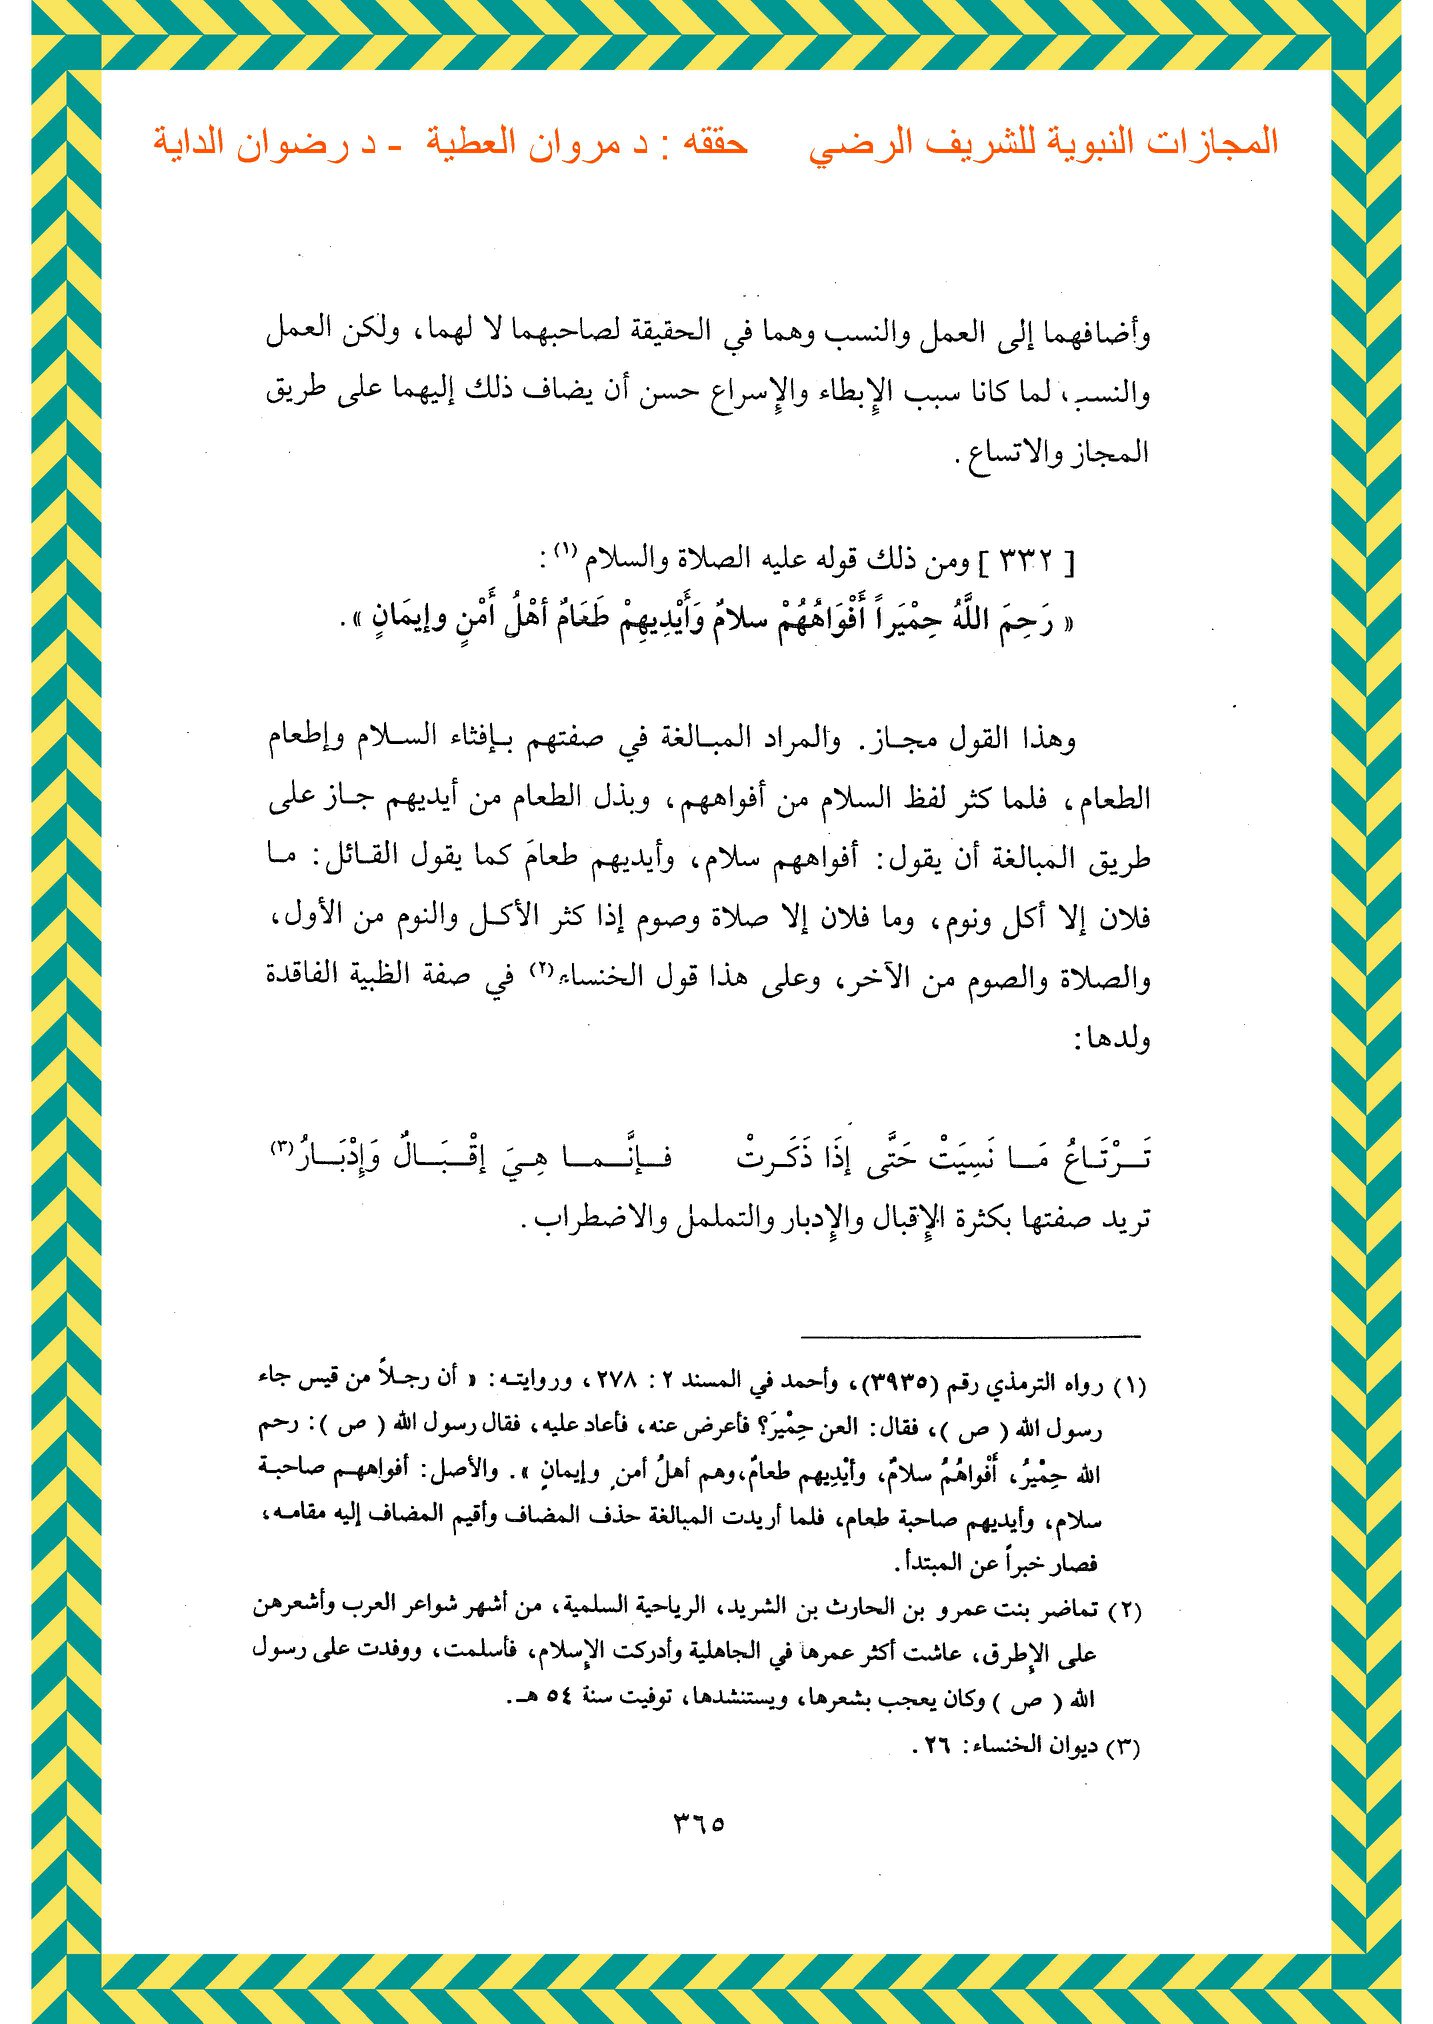 المجازات النبوية للشريف الرضي حققه : د مروان العطية - د رضوان الداية
وأضافهما إلى العمل والنسب وهما في الحقيقة لصاحبهما لا لهما، ولكن العمل
والنسب، لما كانا سبب الإبطاء والإسراع حسن أن يضاف ذلك إليهما على طريق
المجاز والاتساع.
[ ٣٣٢ ] ومن ذلك قوله عليه الصلاة والسلام (١):
« رَحِمَ اللَّهُ حِمْيَراً أَفْوَاهُهُمْ سلامٌ وَأَيْدِيهِمْ طَعَامٌ أهْلُ أَمْنٍ وإيمَانٍ ».
وهذا القول مجاز. والمراد المبالغة في صفتهم بإفثاء السلام وإطعام
الطعام، فلما كثر لفظ السلام من أفواههم، وبذل الطعام من أيديهم جاز على
طريق المبالغة أن يقول: أفواههم سلام، وأيديهم طعامَ كما يقول القائل: ما
فلان إلا أكل ونوم، وما فلان إلا صلاة وصوم إذا كثر الأكل والنوم من الأول،
والصلاة والصوم من الآخر، وعلى هذا قول الخنساء(٢) في صفة الظبية الفاقدة
ولدها:
تَرْتَاعُ مَا نَسِيَتْ حَتَّى إذَا ذَكَرتْ فإنَّما هِيَ إقْبَالٌ وَإِدْبَارُ(٣)
تريد صفتها بكثرة الإقبال والإدبار والتململ والاضطراب.
(١) رواه الترمذي رقم (٣٩٣٥)، وأحمد في المسند ٢ : ٢٧٨، وروايته: « أن رجلاً من قيس جاء
رسول الله ( ص )، فقال: العن حِمْيَرَ؟ فأعرض عنه، فأعاد عليه، فقال رسول الله ( ص ): رحم
الله حِمْيرُ، أَفْواهُمُ سلامٌ، وأيْدِيهم طعامٌ،وهم أهلُ أمنٍ وإيمانٍ ». والأصل: أفواههم صاحبة
سلام، وأيديهم صاحبة طعام، فلما أريدت المبالغة حذف المضاف وأقيم المضاف إليه مقامه،
فصار خبراً عن المبتدأ.
(٢) تماضر بنت عمرو بن الحارث بن الشريد، الرياحية السلمية، من أشهر شواعر العرب وأشعرهن
على الإطرق، عاشت أكثر عمرها في الجاهلية وأدركت الإسلام، فأسلمت، ووفدت على رسول
الله ( ص ) وكان يعجب بشعرها، ويستنشدها، توفيت سنة ٥٤ هـ.
(٣) ديوان الخنساء: ٢٦.
٣٦٥